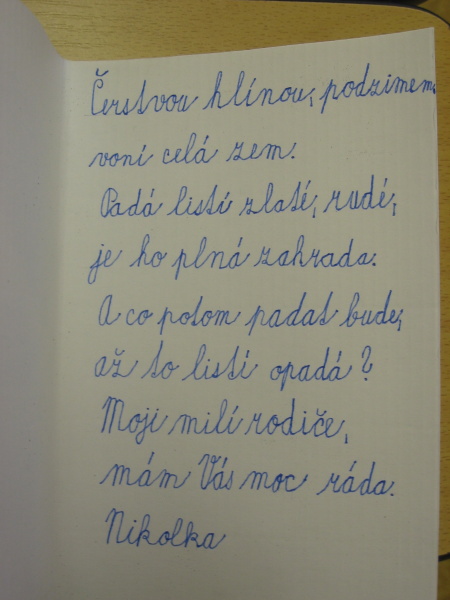 Čerstvou hlínou, podzimem,
voní celá zem.
Padá listí zlaté, rudé,
je ho plná zahrada.
A co potom padat bude,
až to listí opadá?
Moji milí rodiče,
mám Vás moc ráda.
Nikolka